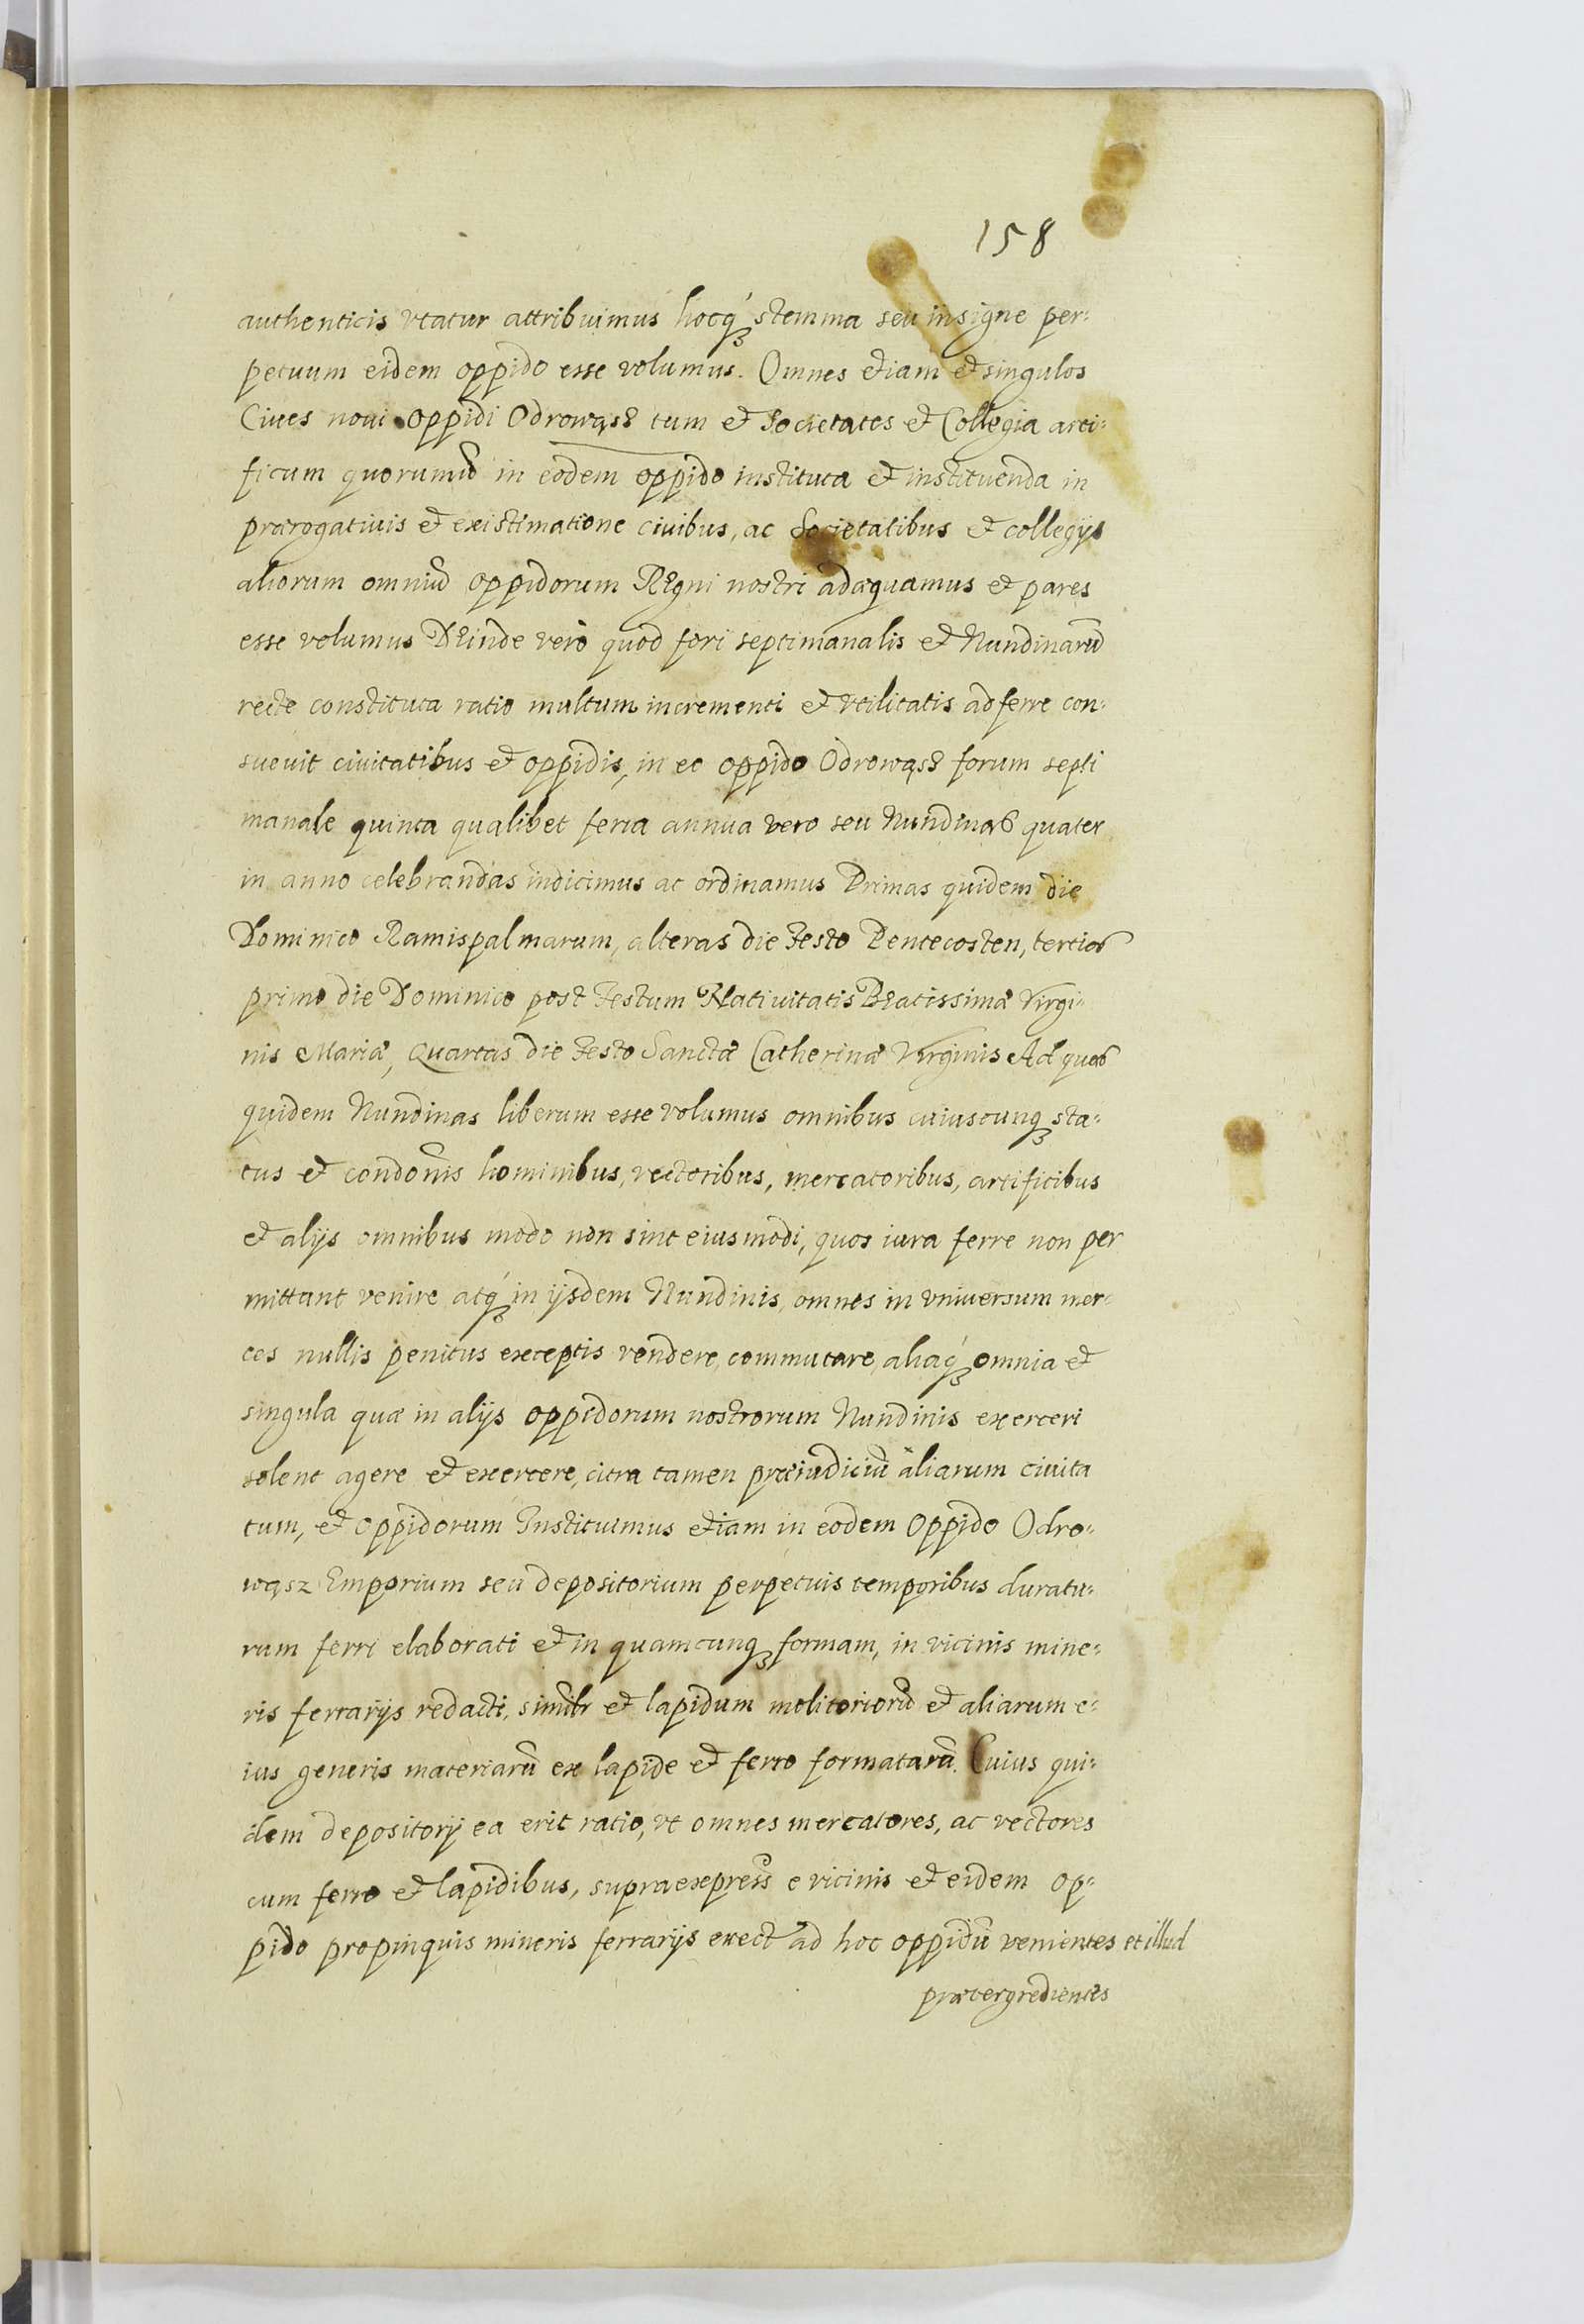 158
authenticis vtatur attribuimus hocq́ꝫ stemma seu insigne per-
petuum eidem oppido esse volumus. Omnes etiam et singulos
Ciues noui oppidi Odrowąsz tum et Societates et Collegia arti-
ficum quorumuis in eodem oppido instituta et instituenda in
prærogatiuis et existimatione ciuibus, ac Societatibus et collegijs
aliorum omniũ oppidorum Regni nostri adæquamus et pares
esse volumus Deinde verò quod fori septimanalis et Nundinarũ
recte constituta ratio multum incrementi et vtilitatis adferre con-
sueuit ciuitatibus et oppidis, in eo oppido Odrowąsz forum septi
manale quinta qualibet feria annua vero seu Nundinas quater
in anno celebrandas indicimus ac ordinamus Primas quidem die
Dominico Ramispalmarum, alteras die Festo Pentecosten, tertias
primo die Dominico post Festum Natiuitatis Beatissimæ Virgi-
nis Mariæ, Quartas die Festo Sanctæ Catherinæ Virginis Ad quas
quidem Nundinas liberum esse volumus omnibus cuiuscunqꝫ sta-
tus et condonis̃ hominibus, vectoribus, mercatoribus, artificibus
et alijs omnibus modo non sint eiusmodi, quos iura ferre non per
mittant venire atq́ꝫ in ijsdem Nundinis, omnes in vniuersum mer-
ces nullis penitus exceptis vendere, commutare, aliaq́ꝫ omnia et
singula quæ in alijs oppidorum nostrorum Nundinis exerceri
solent agere et exercere, citra tamen præiudiciũ aliarum ciuita
tum, et oppidorum Instituimus etiam in eodem Oppido Odro-
wąsz Emporium seu depositorium perpetuis temporibus duratu-
rum ferri elaborati et in quamcunqꝫ formam, in vicinis mine-
ris ferrarijs redacti, simil̃r et lapidum molitoriorũ et aliarum e-
ius generis materiarũ ex lapide et ferro formatarũ. Cuius qui-
dem depositorij ea erit ratio, vt omnes mercatores, ac vectores
cum ferro et lapidibus, supraexpress̃ e vicinis et eidem op-
pido propinquis mineris ferrarijs euect̃ ad hoc oppidũ venientes et illud
prætergredientes